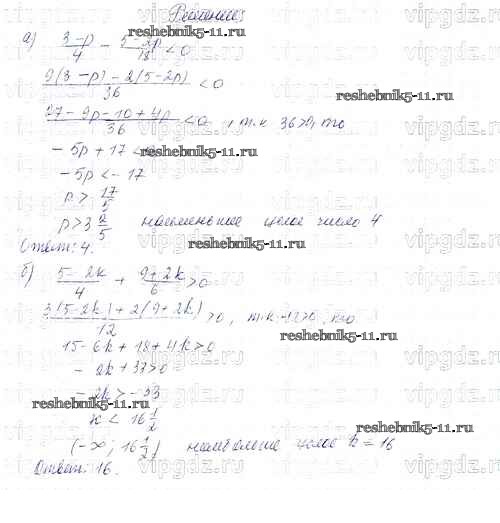 Решение
а) (3-p)/4 - (5-2p)/18 < 0
(9(3-p) - 2(5-2p))/36 < 0
(27-9p-10+4p)/36 < 0, т.к 36>0, то
-5p + 17 < 0
-5p < -17
p > 17/5
p > 3 2/5 наименьшее целое число 4
Ответ: 4.
б) (5-2k)/4 + (9+2k)/6 > 0
(3(5-2k) + 2(9+2k))/12 > 0, т.к 12>0, то
15-6k + 18 + 4k > 0
-2k + 33 > 0
-2k > -33
k < 16 1/2
(-∞; 16 1/2) наибольшее целое k = 16
Ответ: 16.
reshebnik5-11.ru
reshebnik5-11.ru
reshebnik5-11.ru
reshebnik5-11.ru
reshebnik5-11.ru
reshebnik5-11.ru
reshebnik5-11.ru
vipgdz.ru